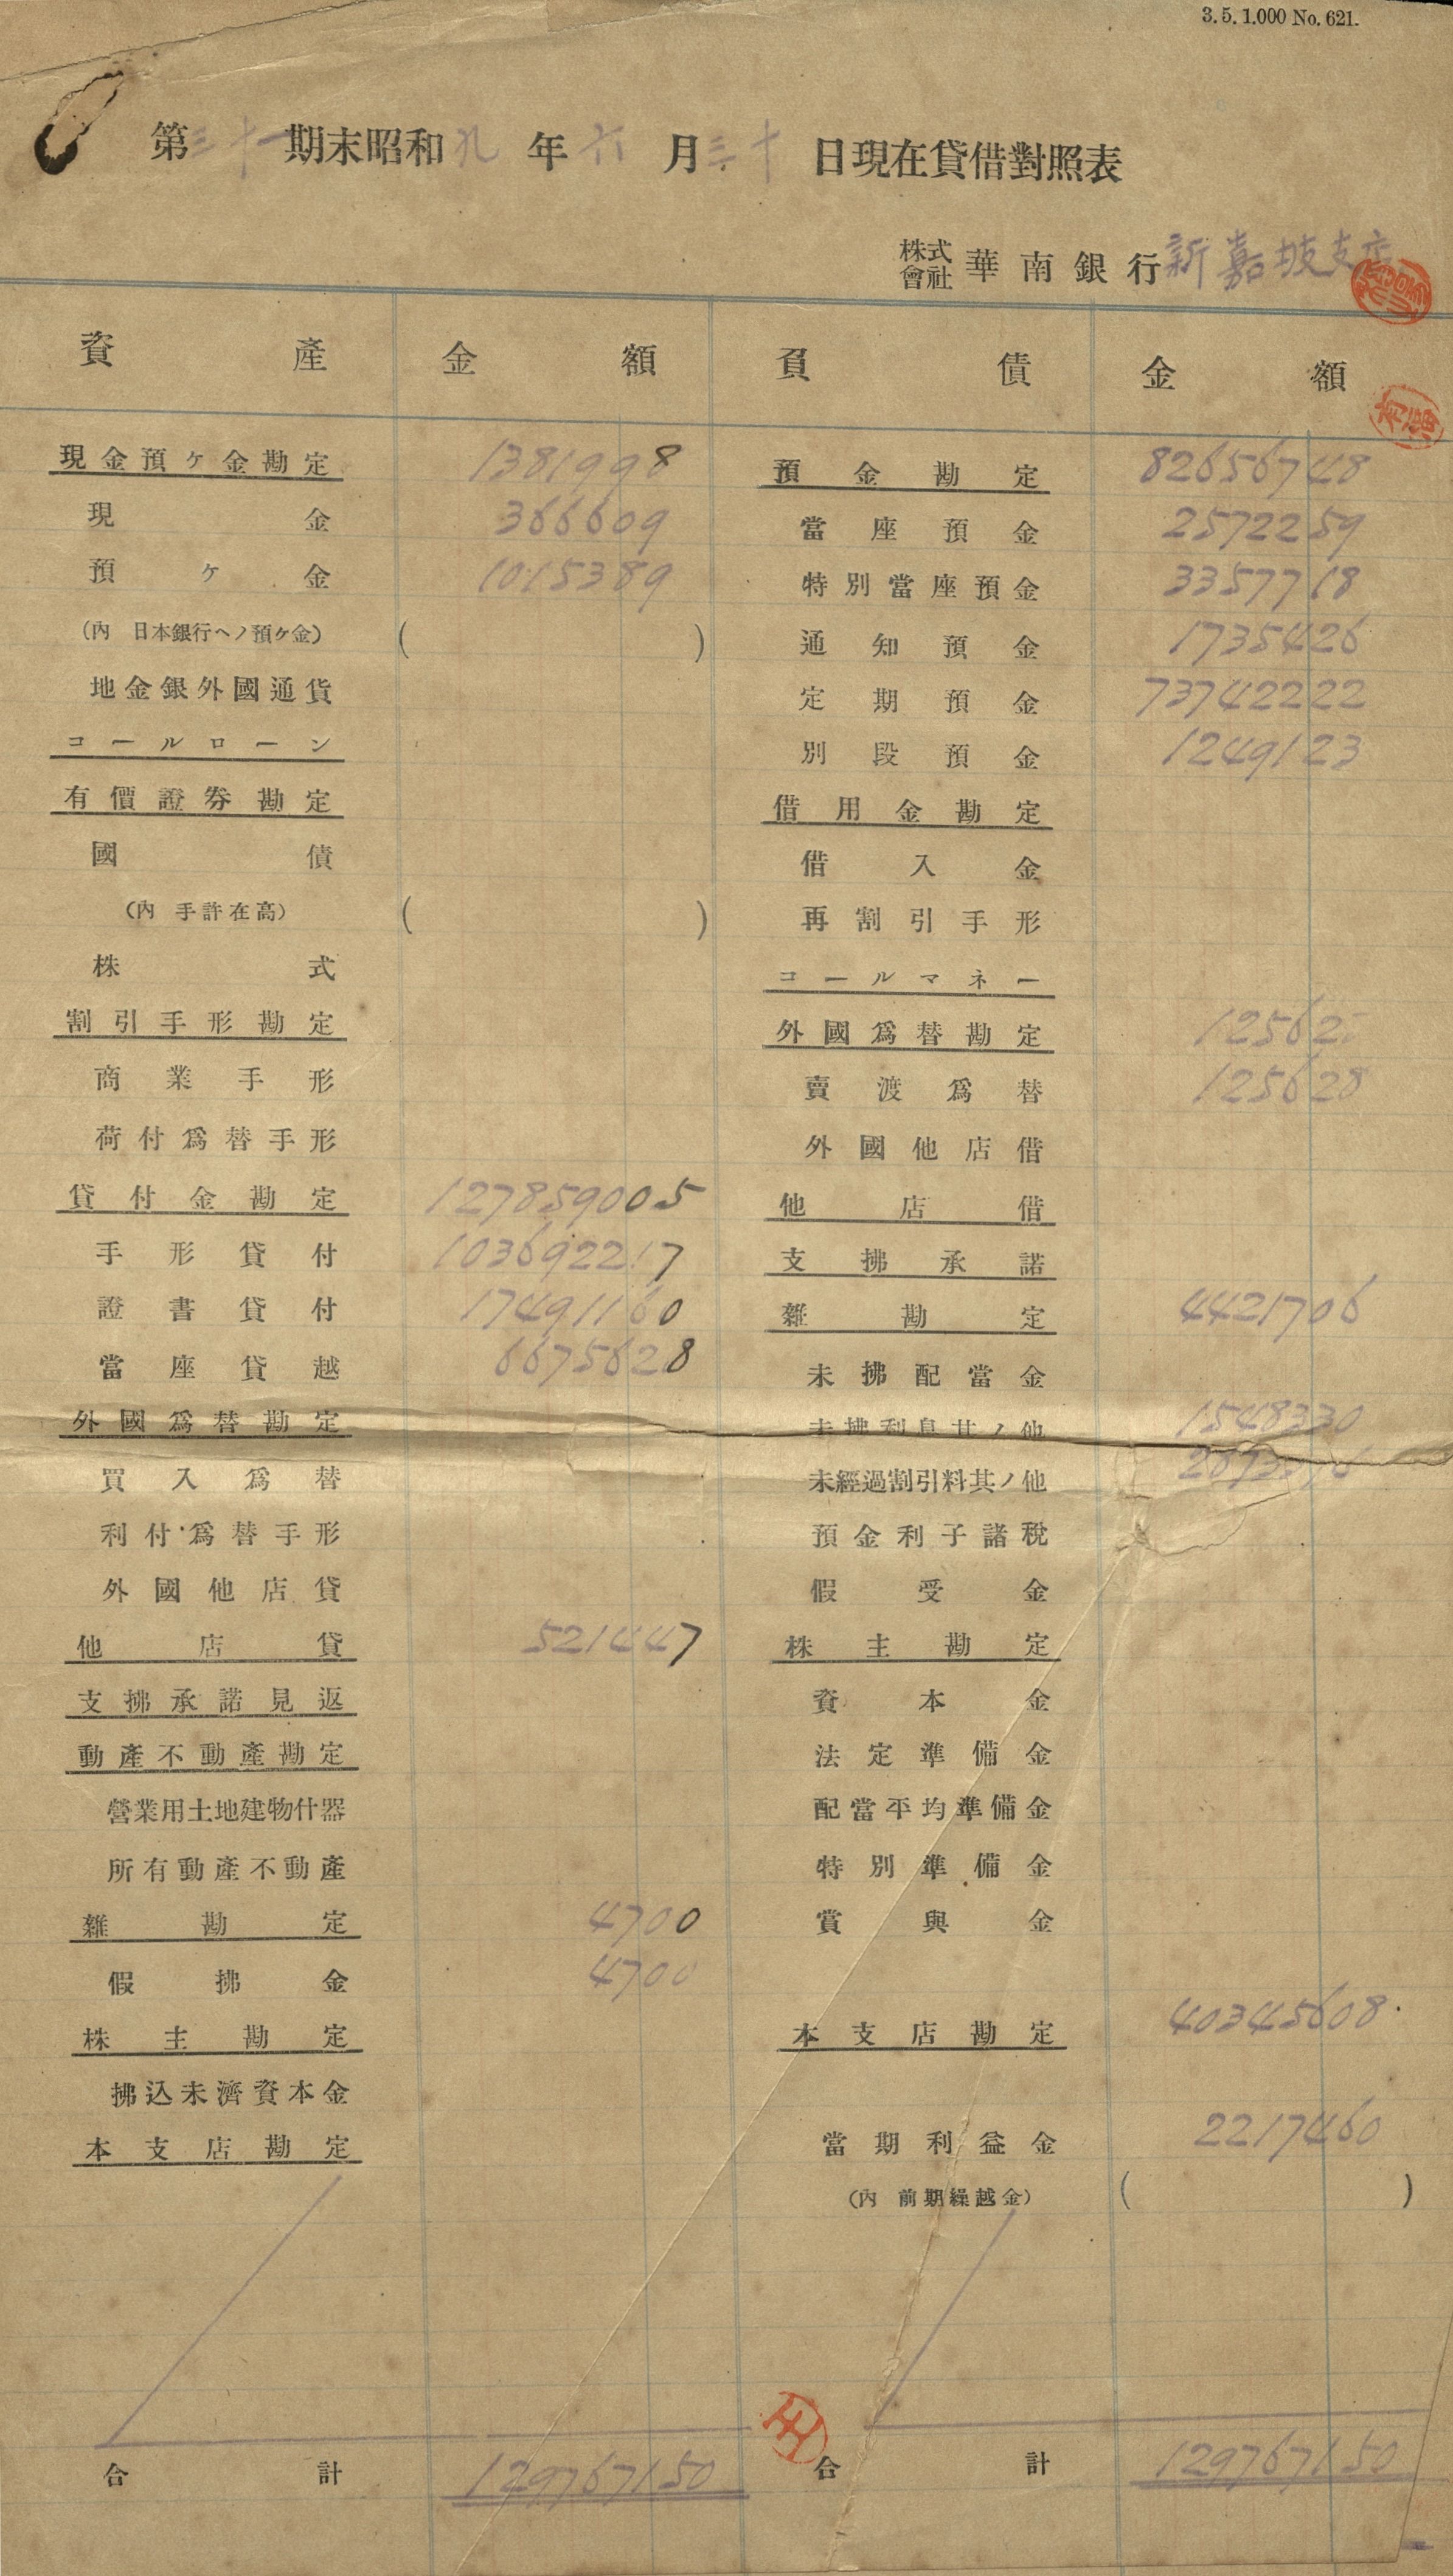 3.5.1.000 No. 621.
第三十一期末昭和九年六月三十日現在貸借對照表
株式會社 華南銀行新嘉坡支店
資產 金額 負債 金額
現金預ケ金勘定 1381998 預金勘定 82656748
現金 366609 當座預金 2572259
預ケ金 1015389 特別當座預金 3357718
(內 日本銀行ヘノ預ケ金) ( ) 通知預金 1735426
地金銀外國通貨 定期預金 73742222
コールローン 別段預金 1249123
有價證券勘定 借用金勘定
國債 借入金
(內 手許在高) ( ) 再割引手形
株式 コールマネー
割引手形勘定 外國爲替勘定 125628
商業手形 賣渡爲替 125628
荷付爲替手形 外國他店借
貸付金勘定 127859005 他店借
手形貸付 103692217 支拂承諾
證書貸付 17491160 雜勘定 4421706
當座貸越 6675628 未拂配當金
外國爲替勘定 未拂利息其ノ他 1548330
買入爲替 未經過割引料其ノ他 2873376
利付爲替手形 預金利子諸稅
外國他店貸 假受金
他店貸 521447 株主勘定
支拂承諾見返 資本金
動產不動產勘定 法定準備金
營業用土地建物什器 配當平均準備金
所有動產不動產 特別準備金
雜勘定 4700 賞與金
假拂金 4700
株主勘定 本支店勘定 40345608
拂込未濟資本金
本支店勘定 當期利益金 2217460
(內 前期繰越金) ( )
合計 129767150 合計 129767150